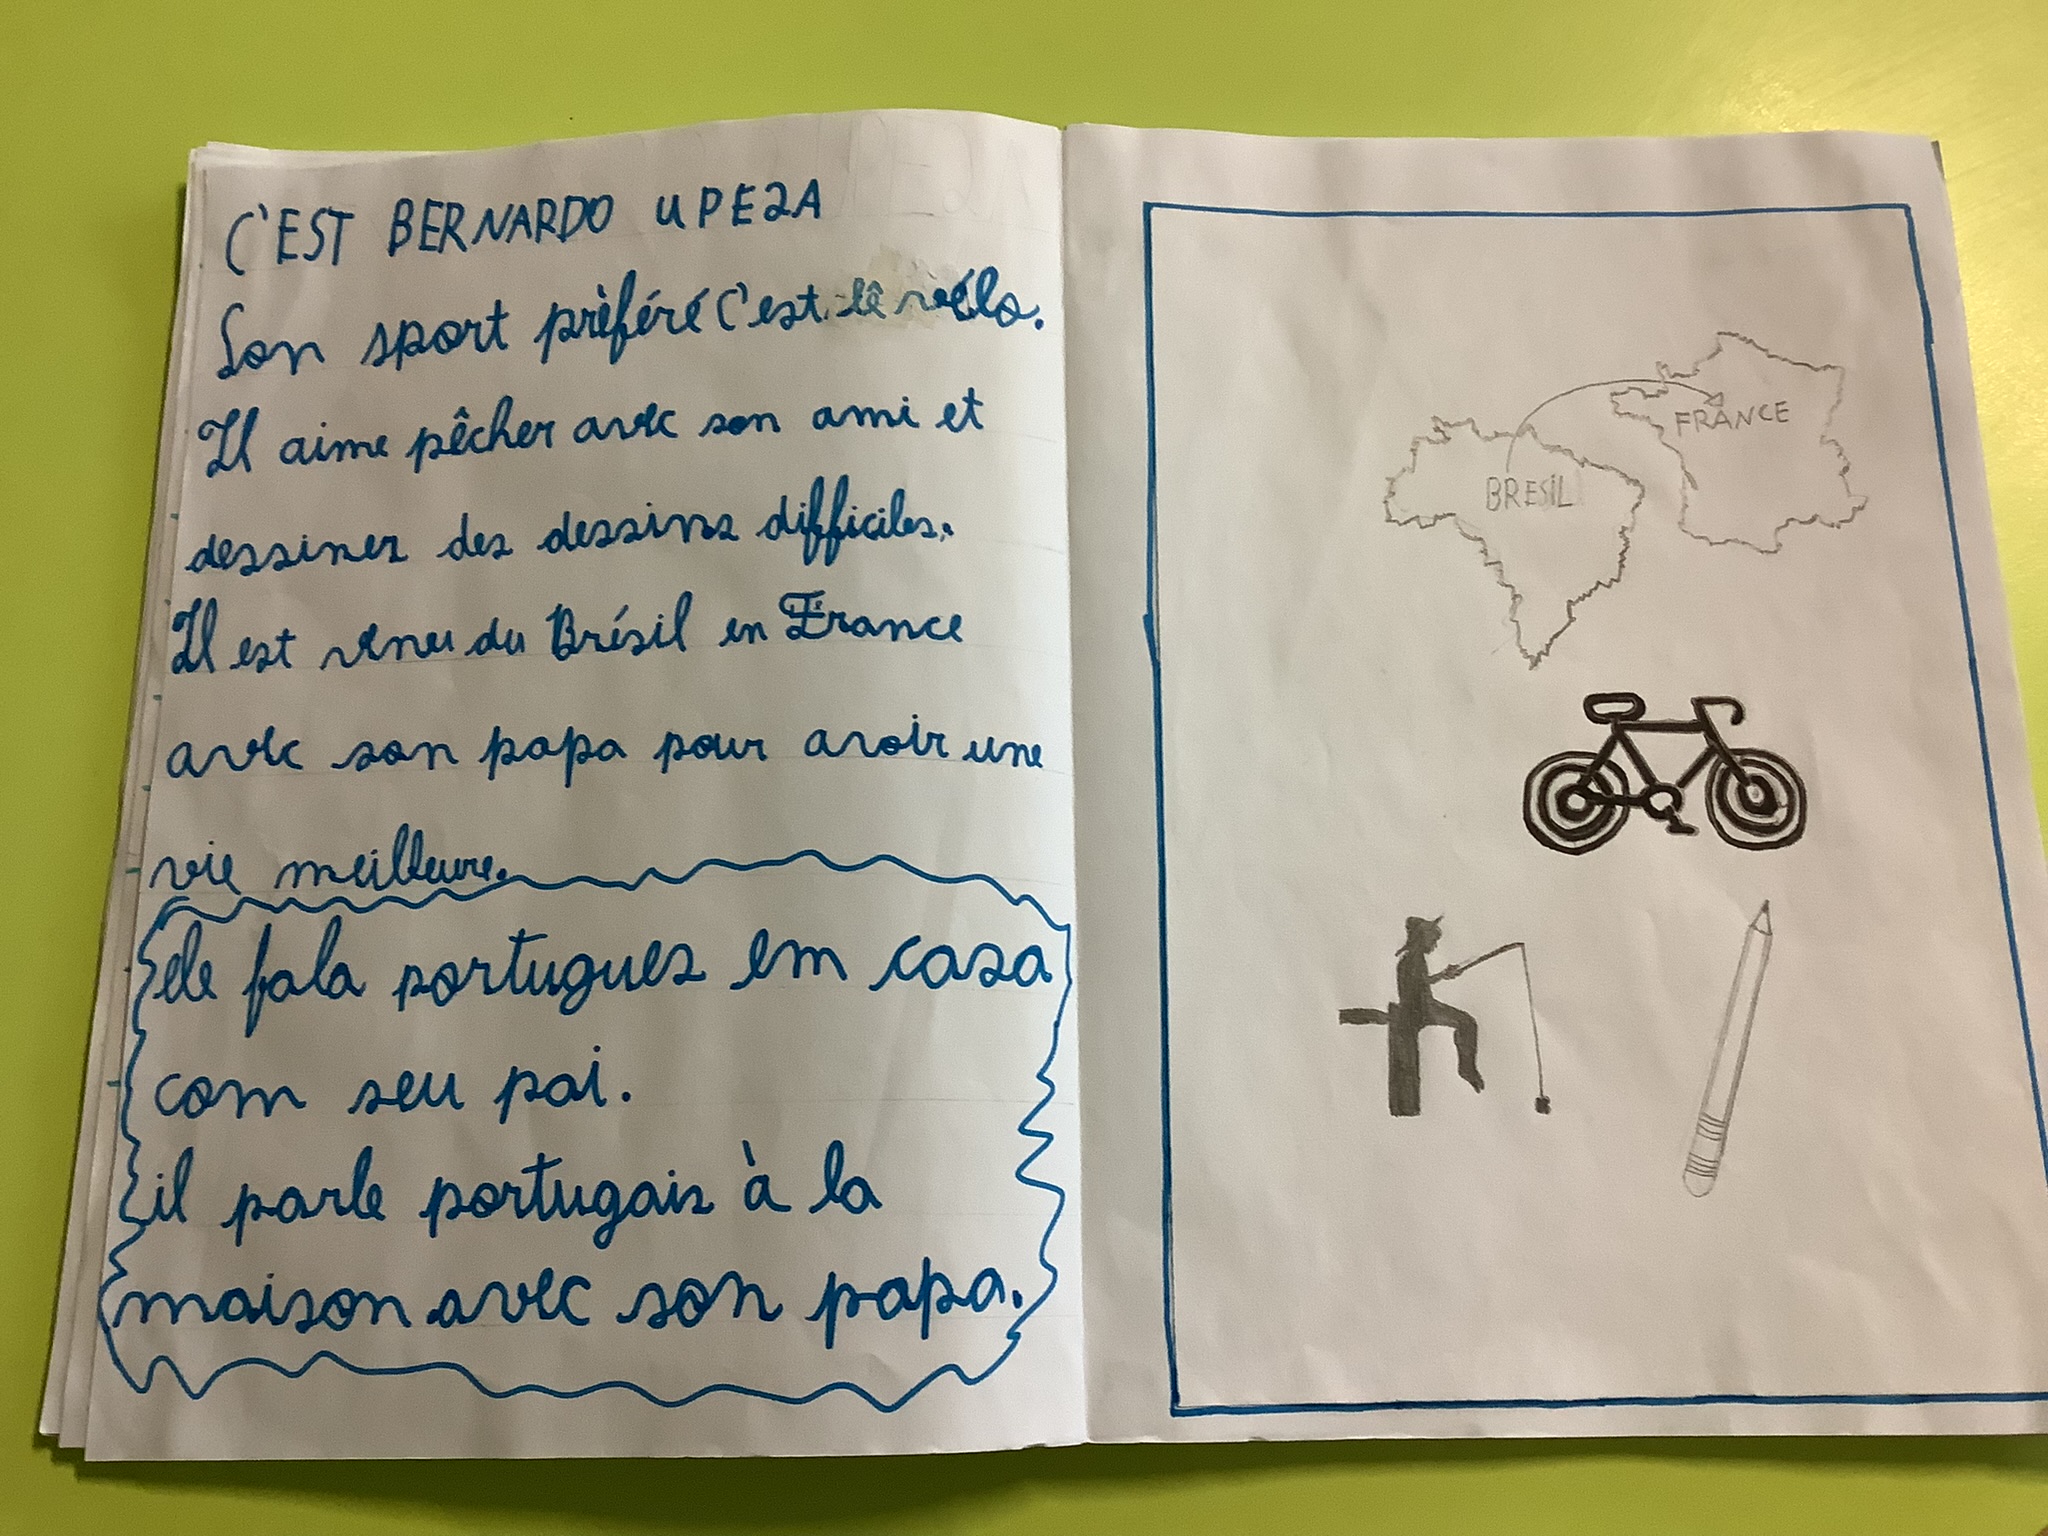 C'EST BERNARDO UPE2A
Son sport prèféré c'est lê vélo.
Il aime pêcher avec son ami et
dessiner des dessins difficiles.
Il est venu du Brésil en France
avec son papa pour avoir une
vie meilleure.
ele fala portugues em casa
com seu pai.
il parle portugais à la
maison avec son papa.
FRANCE
BRESIL